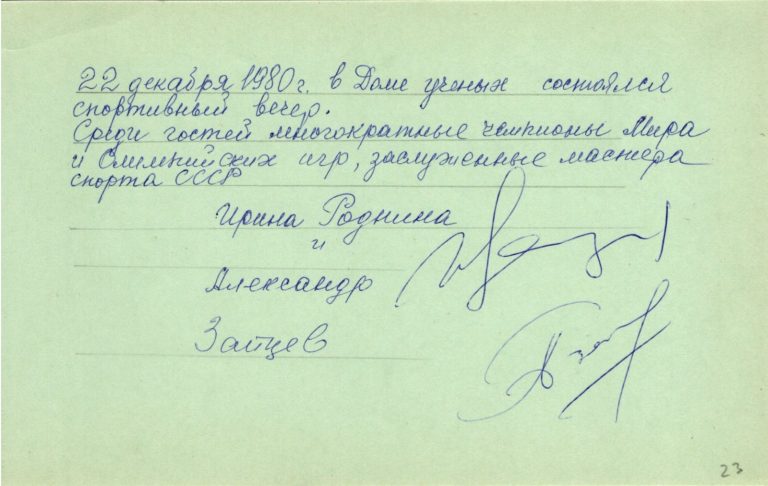 22 декабря 1980 г. в Доме ученых состоялся
спортивный вечер.
Среди гостей многократные чемпионы Мира
и Олимпийских игр, заслуженные мастера
спорта СССР
Ирина Роднина
и
Александр
Зайцев
23